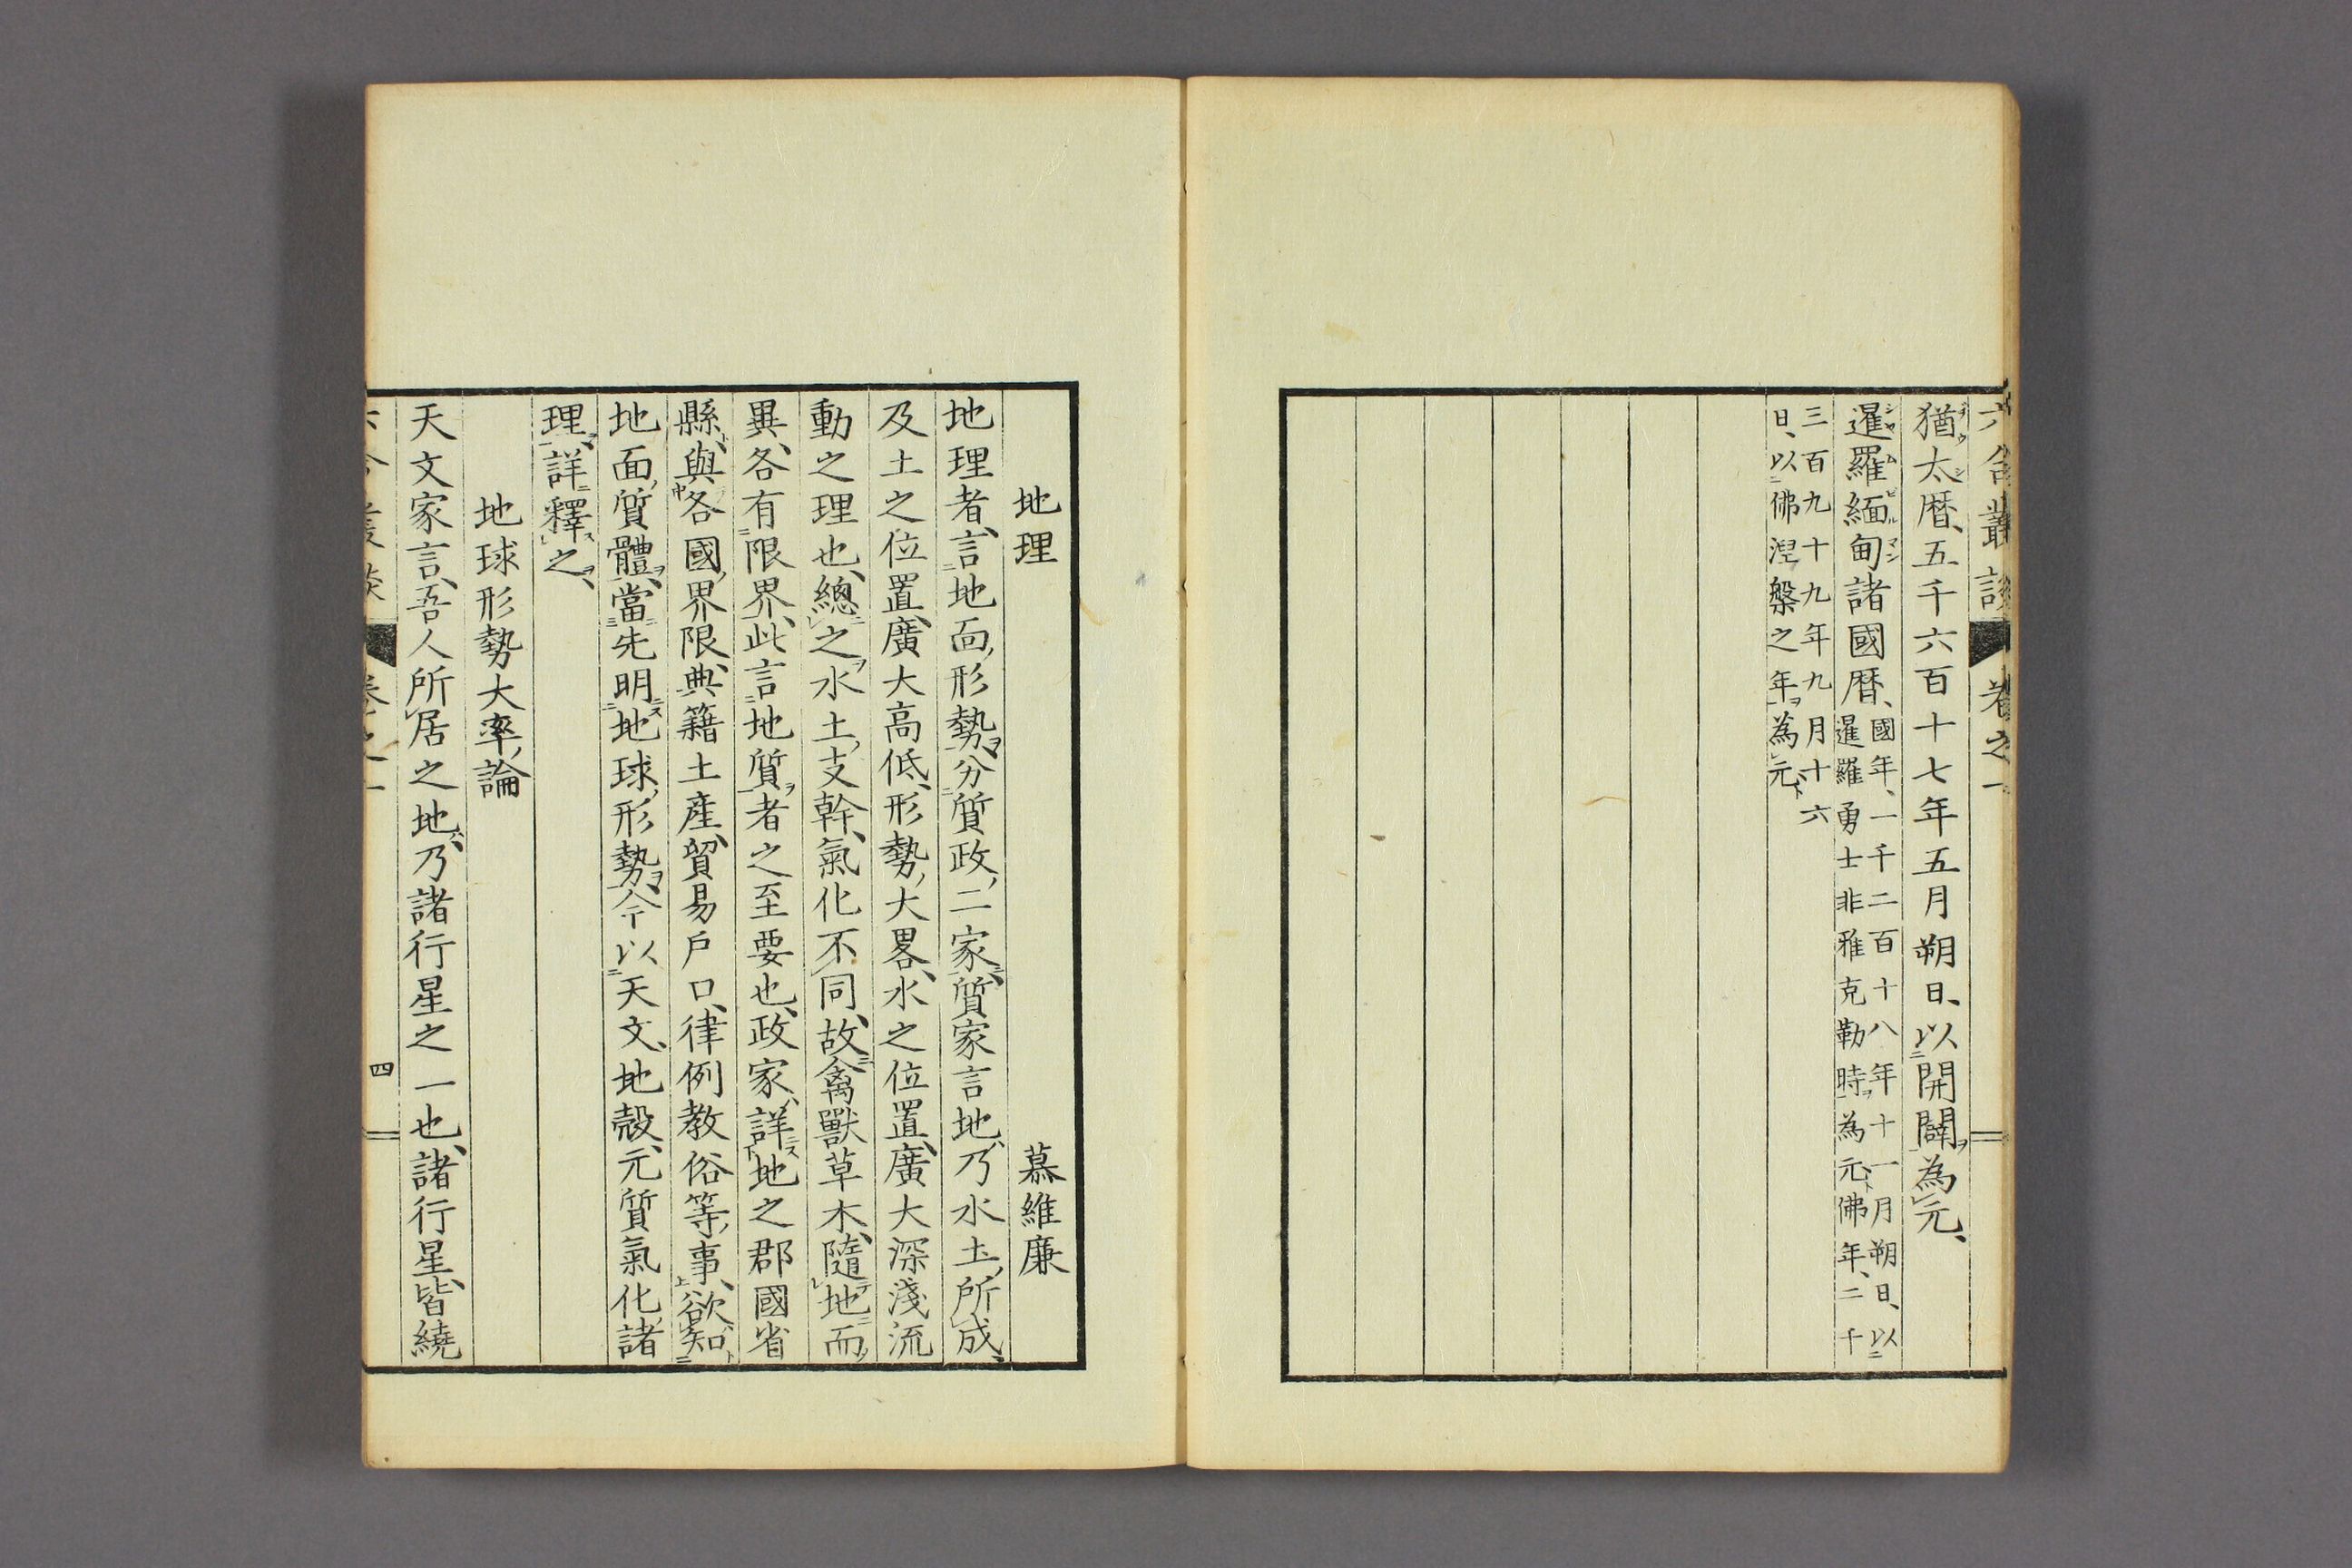 六合叢談 卷之一
猶太暦、五千六百十七年五月朔日、以開闢為元、
暹羅緬甸諸國暦、國年、一千二百十八年十一月朔日、以
暹羅勇士非雅克勒時為元、佛年、二千
三百九十九年九月十六
日、以佛涅槃之年為元、
地理 慕維廉
地理者、言地面形勢、分質政二家、質家言地、乃水土所成、
及土之位置、廣大高低、形勢大畧、水之位置、廣大深淺流
動之理也、總之水土支幹、氣化不同、故禽獸草木、隨地而
異、各有限界、此言地質者之至要也、政家、詳地之郡國省
縣、與各國界限、典籍土產、貿易戶口、律例教俗等事、欲知
地面質體、當先明地球形勢、今以天文、地殼、元質氣化諸
理、詳釋之、
地球形勢大率論
天文家言、吾人所居之地、乃諸行星之一也、諸行星、皆繞
六合叢談 卷之一 四